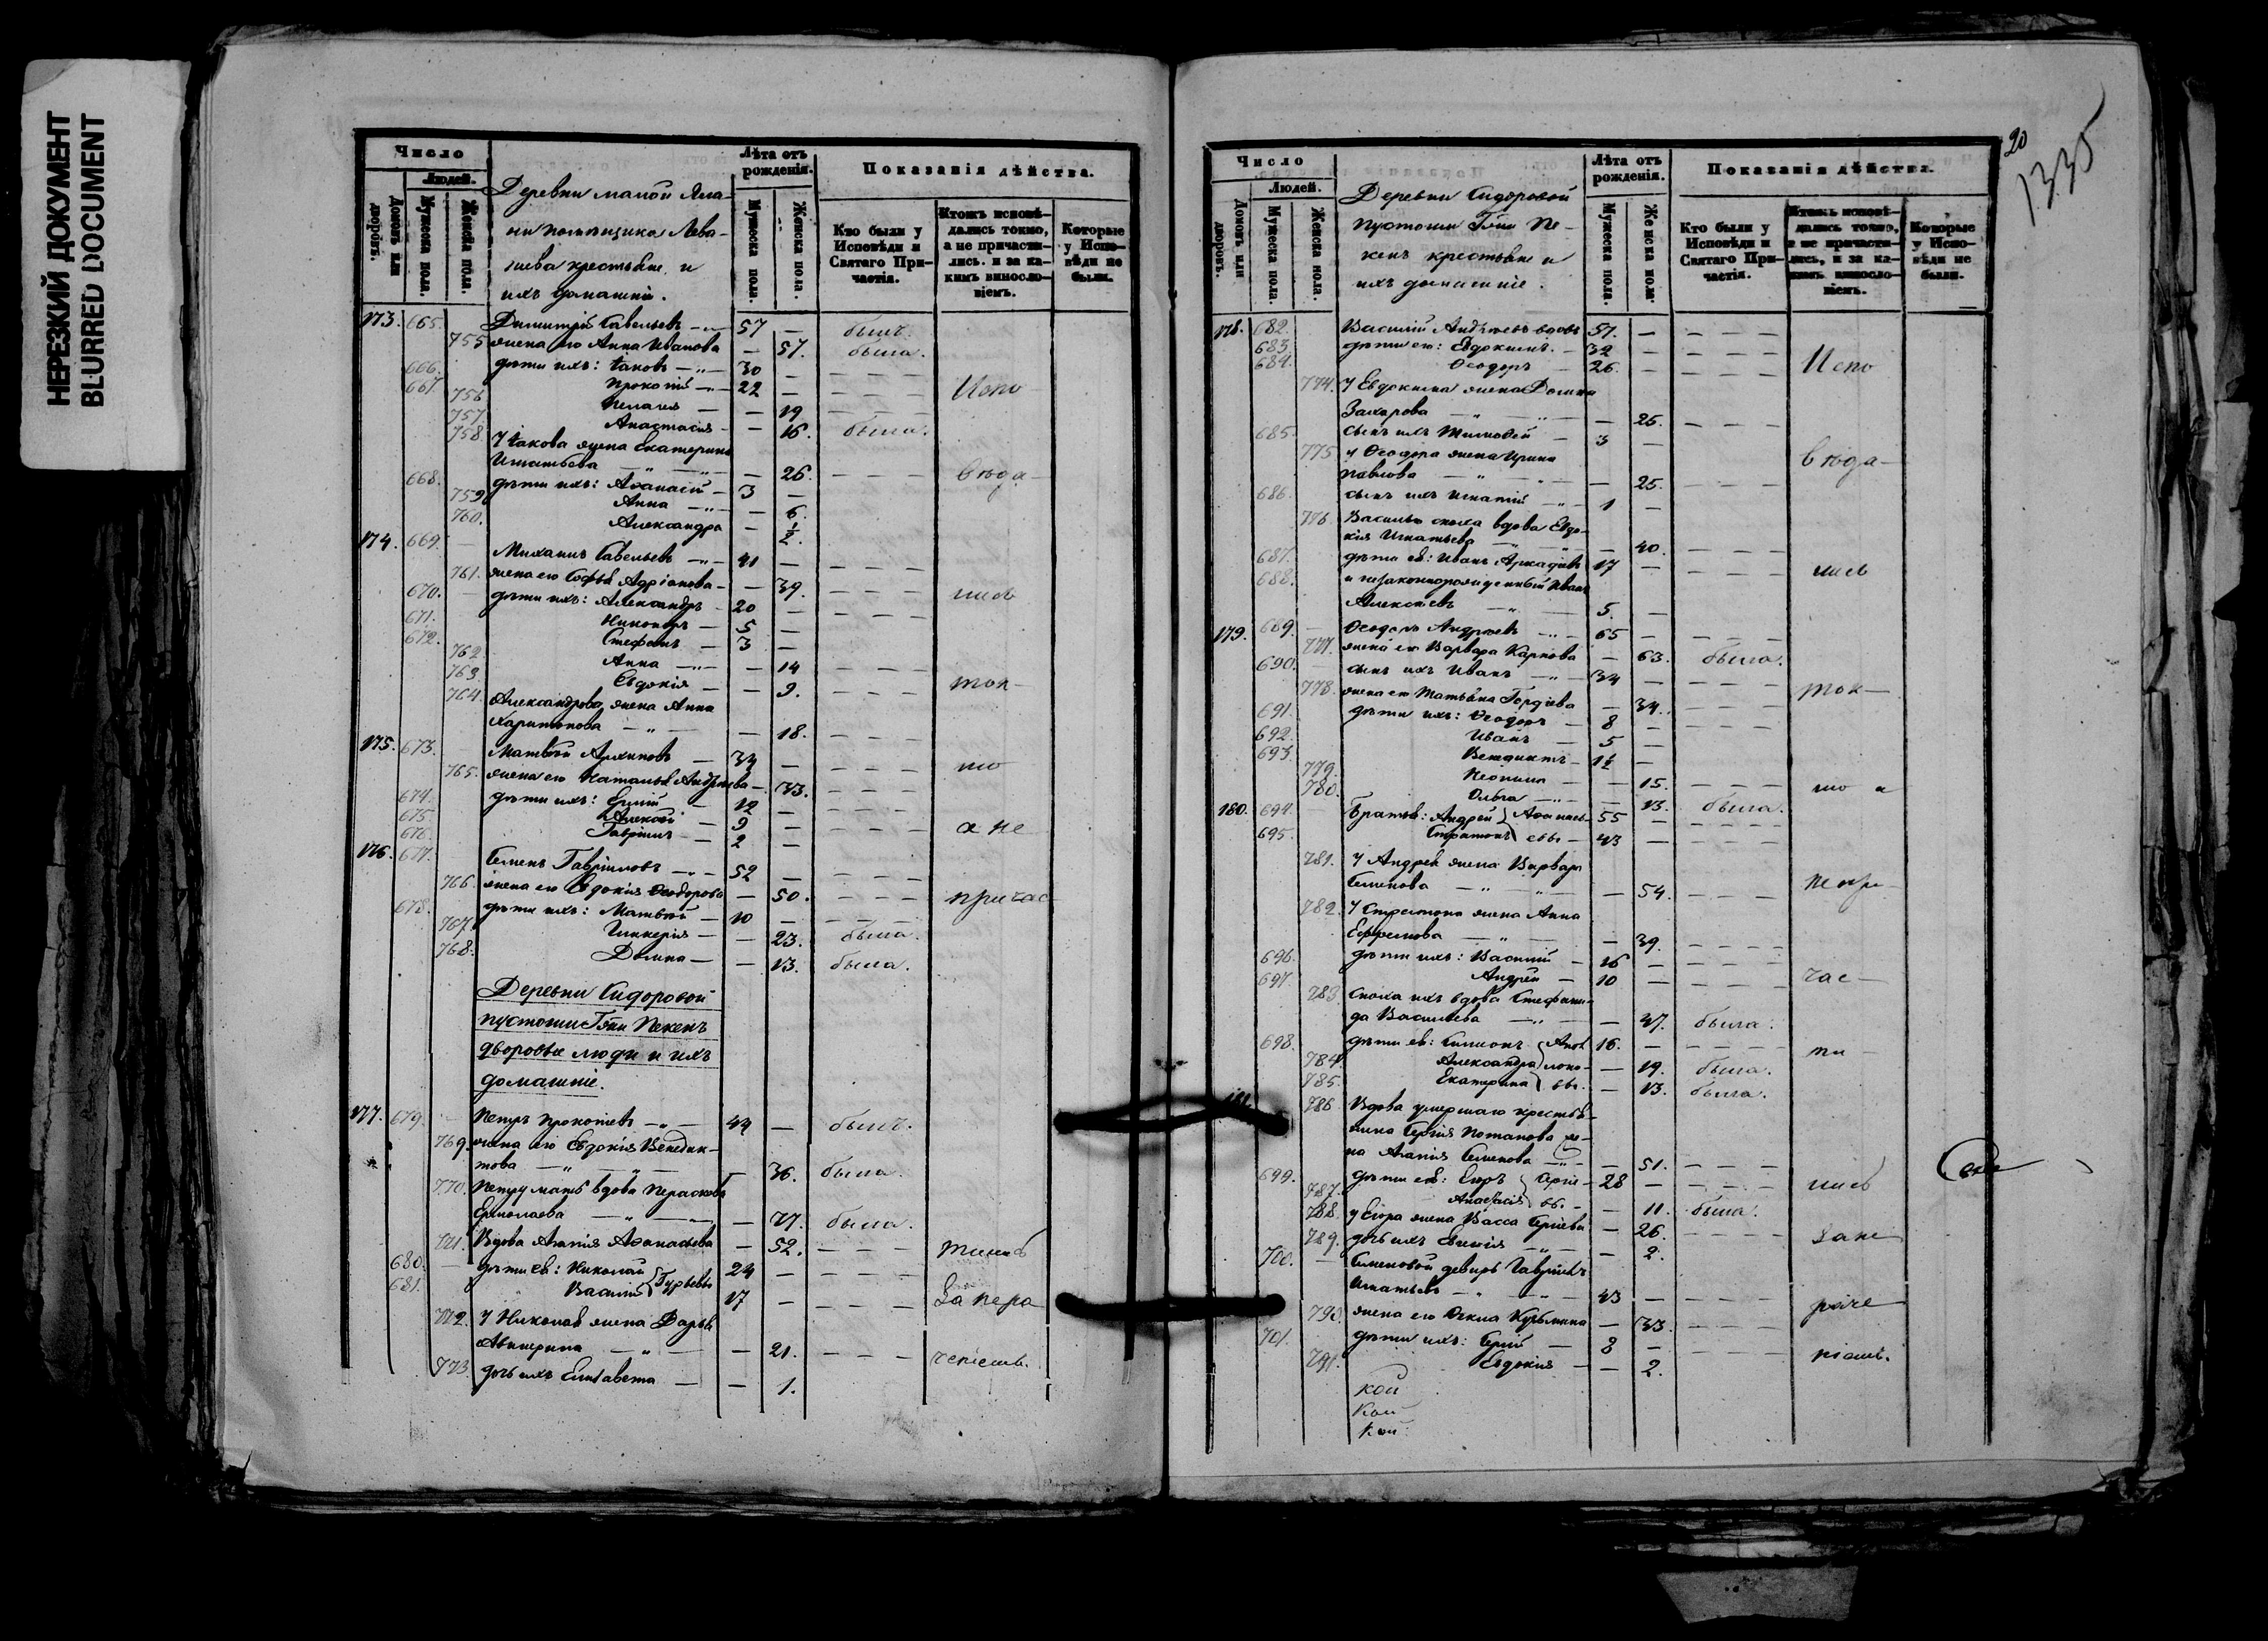 НЕРЕЗКИЙ ДОКУМЕНТ
BLURRED DOCUMENT
Число
Людей.
Домовъ или дворовъ.
Мужеска пола.
Женска пола.
Деревни малой
ни помѣщика Лева-
шева крестьяне и
ихъ домашніи.
Лѣта отъ рожденія.
Мужеска пола.
Женска пола.
Показанія дѣйства.
Кто были у Исповѣди и Святаго Причастія.
Ктожъ исповѣдались токмо, а не причастились. и за какимъ винословіемъ.
Которые у Исповѣди не были.
173. 665. Димитрій Савельевъ 57 — былъ.
755 жена его Анна Иванова — 57. была.
666. дѣти ихъ: Іаковъ 30 —
667 Прокопій 22 — Испо
756 Пелагія — 19
757 Анастасія — 16. была.
758. У Іакова жена Екатерина
Игнатьева — 26. вѣда-
668. дѣти ихъ: Аѳанасій 3 —
759 Анна — 6.
760. Александра — ½.
174. 669. Михаилъ Савельевъ 41 —
761. жена его Софья Адріанова — 39.
670. дѣти ихъ: Александръ 20 — лись
671. Никаноръ 5 —
672. Стефанъ 3 —
762. Анна — 14
763. Евдокія — 9. ток-
764. Александрова жена Анна
Харитонова — 18.
175. 673. Матвѣй Архиповъ 34 — мо
765. жена его Наталья Андреева — 33.
674. дѣти ихъ: Сергій 12 —
675. Алексѣй 9 — а не
676. Гавріилъ 2 —
176. 677. Семенъ Гавриловъ 52 —
766. жена его Евдокія Ѳеодорова — 50. причас
678. дѣти ихъ: Матвѣй 10 —
767. Гликерія — 23. была.
768. Домна — 13. была.
Деревни Сидоровой
пустоши Гжи Пекенъ
дворовые люди и ихъ
домашніе.
177. 679. Петръ Прокопіевъ 44 — былъ.
769. жена его Евдокія Венедик-
това — 36. была.
770. Петру мать вдова Параскева
Ермолаева — 77. была.
771. Вдова Агапія Аѳанасьева — 52. тились
680. дѣти ея: Николай Гурьевы 24 —
681. Василій 17 — За нера
772. У Николая жена Дарья
— 21. ченіемъ.
773. дочь ихъ Елисавета — 1.
20
1335
Число
Людей.
Домовъ или дворовъ.
Мужеска пола.
Женска пола.
Деревни Сидоровой
пустоши Гжи Пе-
кенъ крестьяне и
ихъ домашніе.
Лѣта отъ рожденія.
Мужеска пола.
Женска пола.
Показанія дѣйства.
Кто были у Исповѣди и Святаго Причастія.
Ктожъ исповѣдались токмо, а не причастились, и за какимъ винословіемъ.
Которые у Исповѣди не были.
178. 682. Василій Андреевъ вдовъ 57. —
683. дѣти его: Евдокимъ 32 —
684. Ѳеодоръ 26. — Испо
774. У Евдокима жена Домна
Захарова — 25.
685. сынъ ихъ Тимоѳей 3 —
775 у Ѳеодора жена Ирина вѣда-
Павлова — 25.
686. сынъ ихъ Игнатій 1 —
776. Василью сноха вдова Евдо-
кія Игнатьева — 40.
687. дѣти ея: Иванъ Аркадіевъ 17 — лись
688. и незаконнорожденный Иванъ
Алексѣевъ 5. —
179. 689. Ѳеодоръ Андреевъ 65 —
777. жена его Варвара Карпова — 63. была.
690. сынъ ихъ Иванъ 34 —
778. жена его Татьяна Гордіева — 34. ток-
691. дѣти ихъ: Ѳеодоръ 8 —
692. Иванъ 5 —
693. Венедиктъ 1½ —
779. Неонила — 15. мо а
780. Ольга — 13. была.
180. 694. Братья: Андрей Аѳанась- 55 —
695. Стратонъ евы 43 —
781. У Андрея жена Варвара
Семенова — 54. не при-
782. У Стратона жена Анна
Ефремова — 39.
696. дѣти ихъ: Василій 16 —
697. Андрей 10 — час-
783 Сноха ихъ вдова Стефани-
да Васильева — 47. была.
698. дѣти ея: Симеонъ 16. — ти-
784. Александра — 19. была.
785. Екатерина — 13. была.
181. 786. Вдова умершаго крестья-
нина Сергія Потапова же-
на Агапія Семенова — 51.
699. дѣти ея: Егоръ Сергіе- 28 — лись
787. Анастасія вы. — 11. была.
788. у Егора жена Васса Сергіева — 26. За не
789. дочь ихъ — 2.
700. Семеновой деверь Гавріилъ
Игнатьевъ 43 — раче
790. жена его Ѳекла Кузьмина — 33.
701. дѣти ихъ: Сергій 8 — ніемъ.
791. Евдокія — 2.
кой
кой
кой